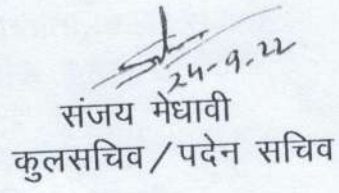 24-9-22
संजय मेधावी
कुलसचिव/पदेन सचिव